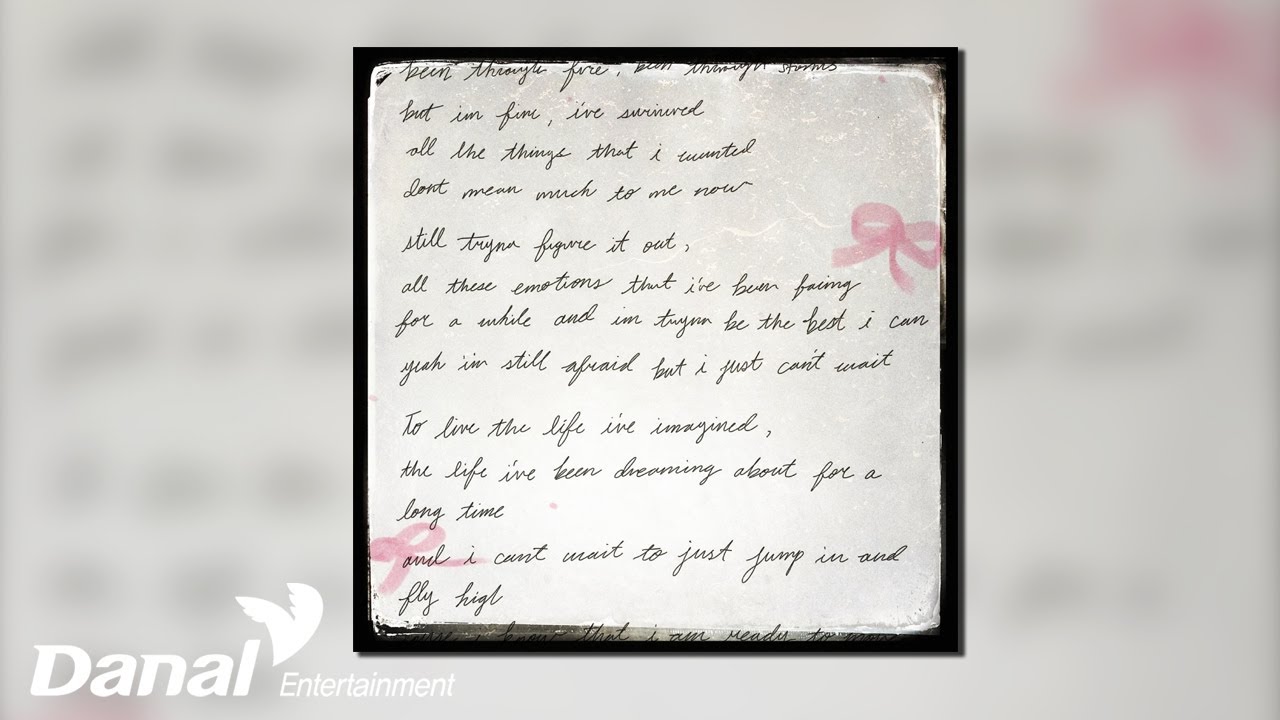 been through fire, been through storms
but im fine, i've survived
all the things that i wanted
dont mean much to me now
still tryna figure it out,
all these emotions that i've been facing
for a while and im tryna be the best i can
yeah i'm still afraid but i just can't wait
To live the life i've imagined,
the life i've been dreaming about for a
long time
and i cant wait to just jump in and
fly high
cause i know that i am ready to
Danal
Entertainment